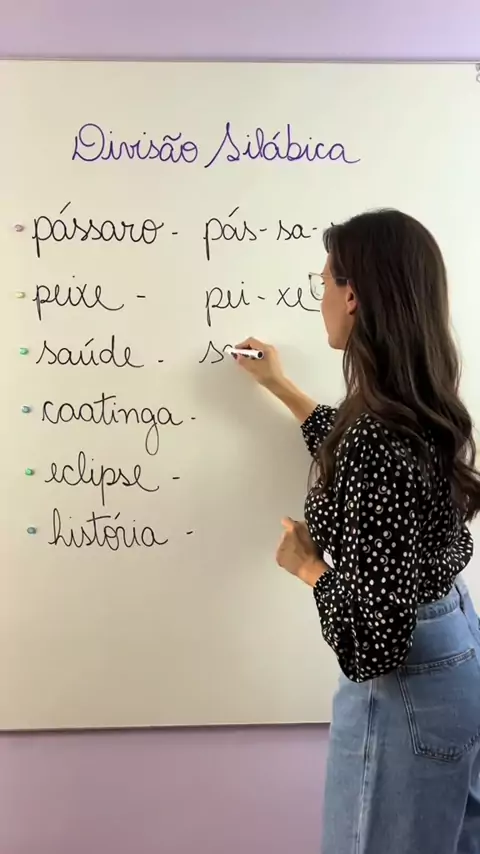 Divisão Silábica
pássaro - pás-sa-
peixe - pei-xe
saúde - sa
caatinga -
eclipse -
história -